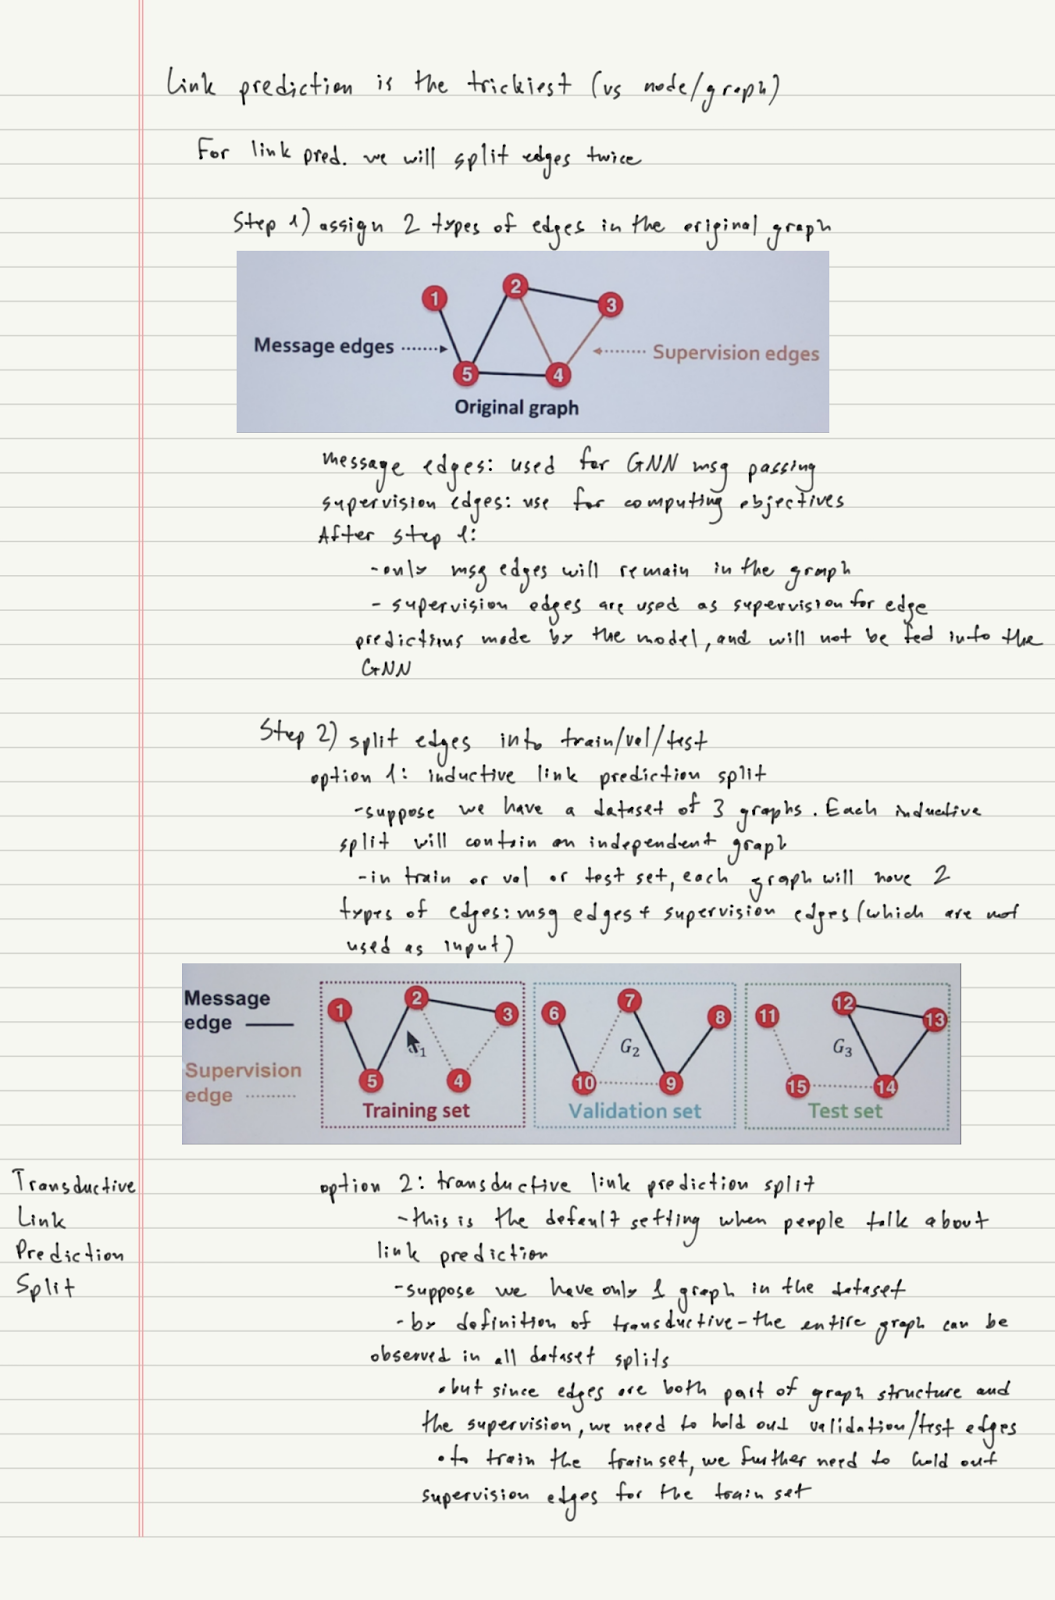 Link prediction is the trickiest (vs node/graph)
For link pred. we will split edges twice
Step 1) assign 2 types of edges in the original graph
1
2
3
Message edges
Supervision edges
5
4
Original graph
message edges: used for GNN msg passing
supervision edges: use for computing objectives
After step 1:
-only msg edges will remain in the graph
- supervision edges are used as supervision for edge
predictions made by the model, and will not be fed into the
GNN
Step 2) split edges into train/val/test
option 1: inductive link prediction split
-suppose we have a dataset of 3 graphs. Each inductive
split will contain an independent graph
-in train or val or test set, each graph will have 2
types of edges: msg edges + supervision edges (which are not
used as input)
Message
edge
Supervision
edge
1
2
3
5
4
Training set
6
7
8
G2
10
9
Validation set
11
12
13
G3
15
14
Test set
Transductive
Link
Prediction
Split
option 2: transductive link prediction split
-this is the default setting when people talk about
link prediction
-suppose we have only 1 graph in the dataset
-by definition of transductive-the entire graph can be
observed in all dataset splits
•but since edges are both part of graph structure and
the supervision, we need to hold out validation/test edges
•to train the train set, we further need to hold out
supervision edges for the train set